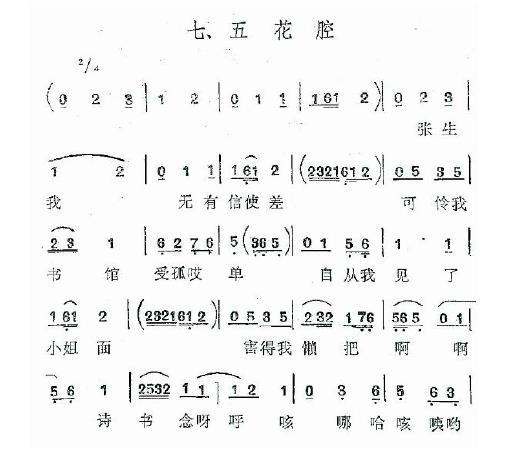 七、五花腔
2/4
(0 2 3 | 1 2 | 0 1 1 | 1 6 1 2) | 0 2 3 |
张生
1 2 | 0 1 1 | 1 6 1 2 | (2 3 2 1 6 1 2) | 0 5 3 5 |
我 无有信使差 可怜我
2 3 1 | 6 2 7 6 | 5 (3 6 5) | 0 1 5 6 | 1 1 |
书馆 受孤哎 单 自从我 见了
1 6 1 2 | (2 3 2 1 6 1 2) | 0 5 3 5 | 2 3 2 1 7 6 | 5 6 5 0 1 |
小姐面 害得我 懒把 啊 啊
5 6 1 | 2 5 3 2 1 1 | 1 2 1 | 0 3 6 | 5 6 3 |
诗 书 念呀 呼 咳 哪哈 咳 咦哟